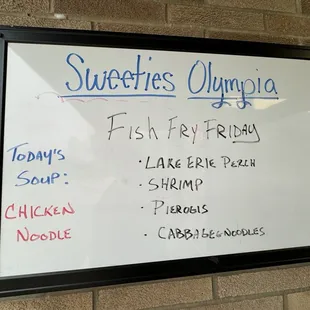 Sweeties Olympia
Fish Fry Friday
Today's
Soup:
Chicken
Noodle
· Lake Erie Perch
· Shrimp
· Pierogis
· Cabbage&noodles